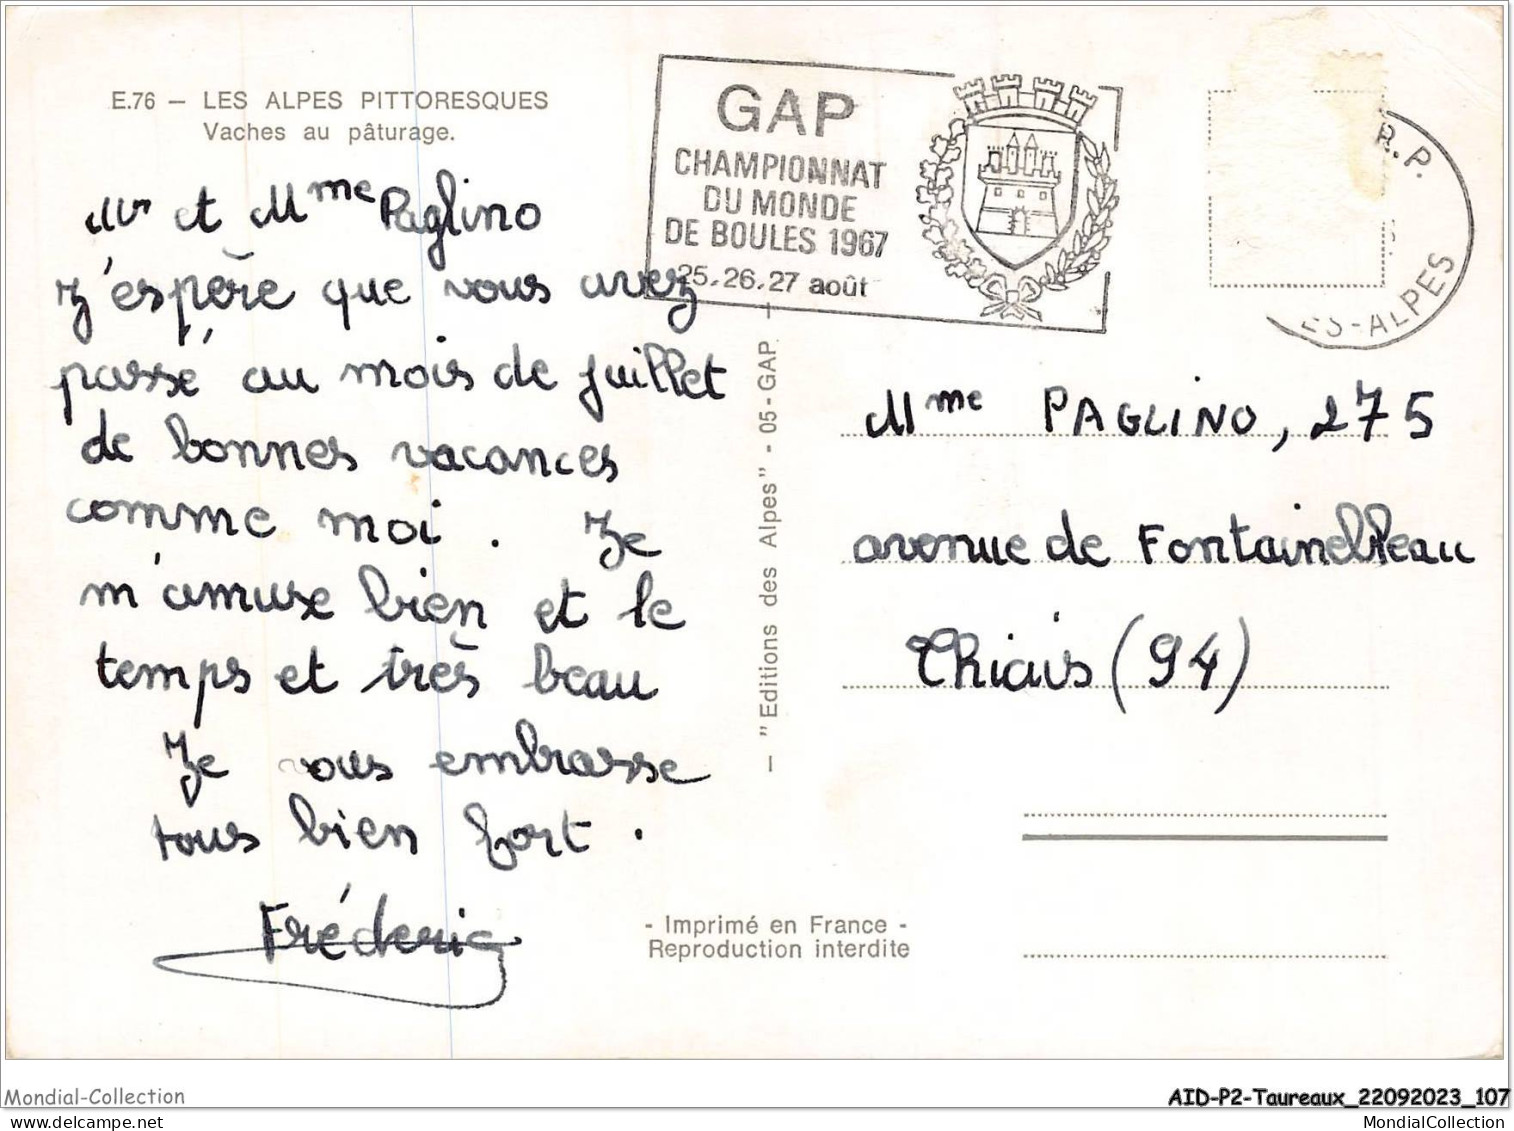 E.76 — LES ALPES PITTORESQUES
Vaches au pâturage.
Mr et Mme Paglino
J'espère que vous avez
passé au mois de juillet
de bonnes vacances
comme moi. Je
m'amuse bien et le
temps et très beau
Je vous embrasse
tous bien fort.
Frédéric
GAP
CHAMPIONNAT
DU MONDE
DE BOULES 1967
25.26.27 août
R.P.
ES-ALPES
— "Editions des Alpes" - 05-GAP —
Mme PAGLINO, 275
avenue de Fontainebleau
Thiais (94)
- Imprimé en France -
Reproduction interdite
Mondial-Collection
AID-P2-Taureaux_22092023_107
MondialCollection